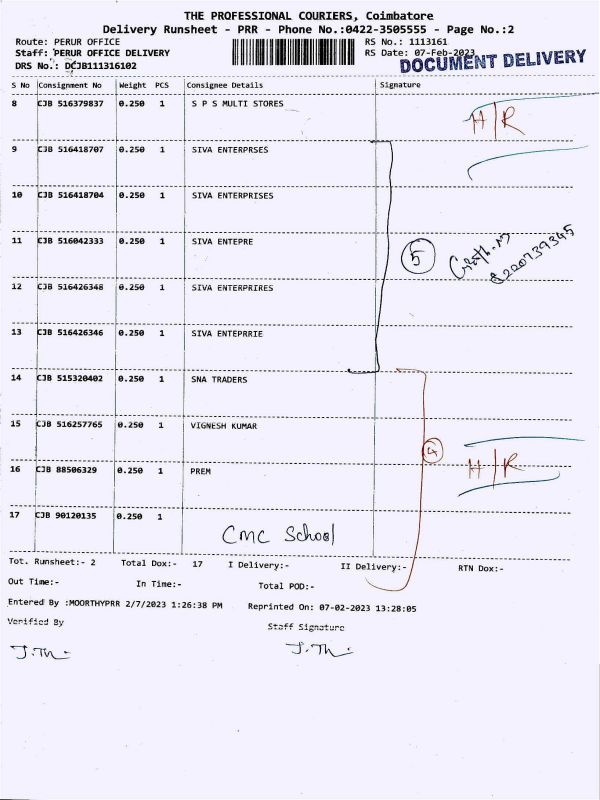 THE PROFESSIONAL COURIERS, Coimbatore
Delivery Runsheet - PRR - Phone No.:0422-3505555 - Page No.:2
Route: PERUR OFFICE RS No.: 1113161
Staff: PERUR OFFICE DELIVERY RS Date: 07-Feb-2023
DRS No.: DCJB111316102 DOCUMENT DELIVERY
S No Consignment No Weight PCS Consignee Details Signature
8 CJB 516379837 0.250 1 S P S MULTI STORES H/R
9 CJB 516418707 0.250 1 SIVA ENTERPRSES
10 CJB 516418704 0.250 1 SIVA ENTERPRISES
11 CJB 516042333 0.250 1 SIVA ENTEPRE 5
12 CJB 516426348 0.250 1 SIVA ENTERPRIRES
13 CJB 516426346 0.250 1 SIVA ENTEPRRIE
14 CJB 515320402 0.250 1 SNA TRADERS
15 CJB 516257765 0.250 1 VIGNESH KUMAR
16 CJB 88506329 0.250 1 PREM H/R
17 CJB 90120135 0.250 1 CMC School
Tot. Runsheet:- 2 Total Dox:- 17 I Delivery:- II Delivery:- RTN Dox:-
Out Time:- In Time:- Total POD:-
Entered By :MOORTHYPRR 2/7/2023 1:26:38 PM Reprinted On: 07-02-2023 13:28:05
Verified By Staff Signature